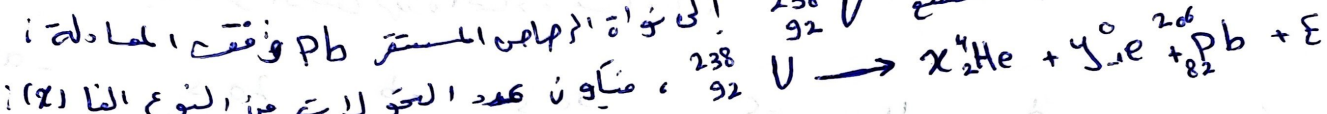 إلى نواة الرصاص المستقر Pb وفق المعادلة :
²³⁸₉₂U → x⁴₂He + y⁰₋₁e + ²⁰⁶₈₂Pb + Ɛ
، فيكون عدد التحولات من النوع الفا (x) :